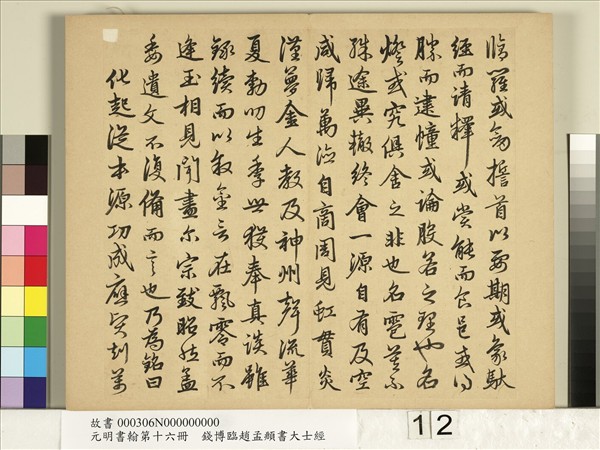 羅或命擔首以要期或象馱
經而請釋或賞能而食邑或得
勝而建幢或論般若之理也名
燈或究俱舍之非也名雹莫不
殊途異轍終會一源自有及空
咸歸萬法自商周見虹貫炎
漢夢金人教及神州聲流華
夏勃叨生季世獲奉真談雖
錄續而以叙金言在飄零而不
逢玉相見聞盡尔宗致昭然蓋
委遺文不復備而言也乃為銘曰
化起從本源功成應萬
故書 000306N000000000
元明書翰第十六冊 錢博臨趙孟頫書大士經
12